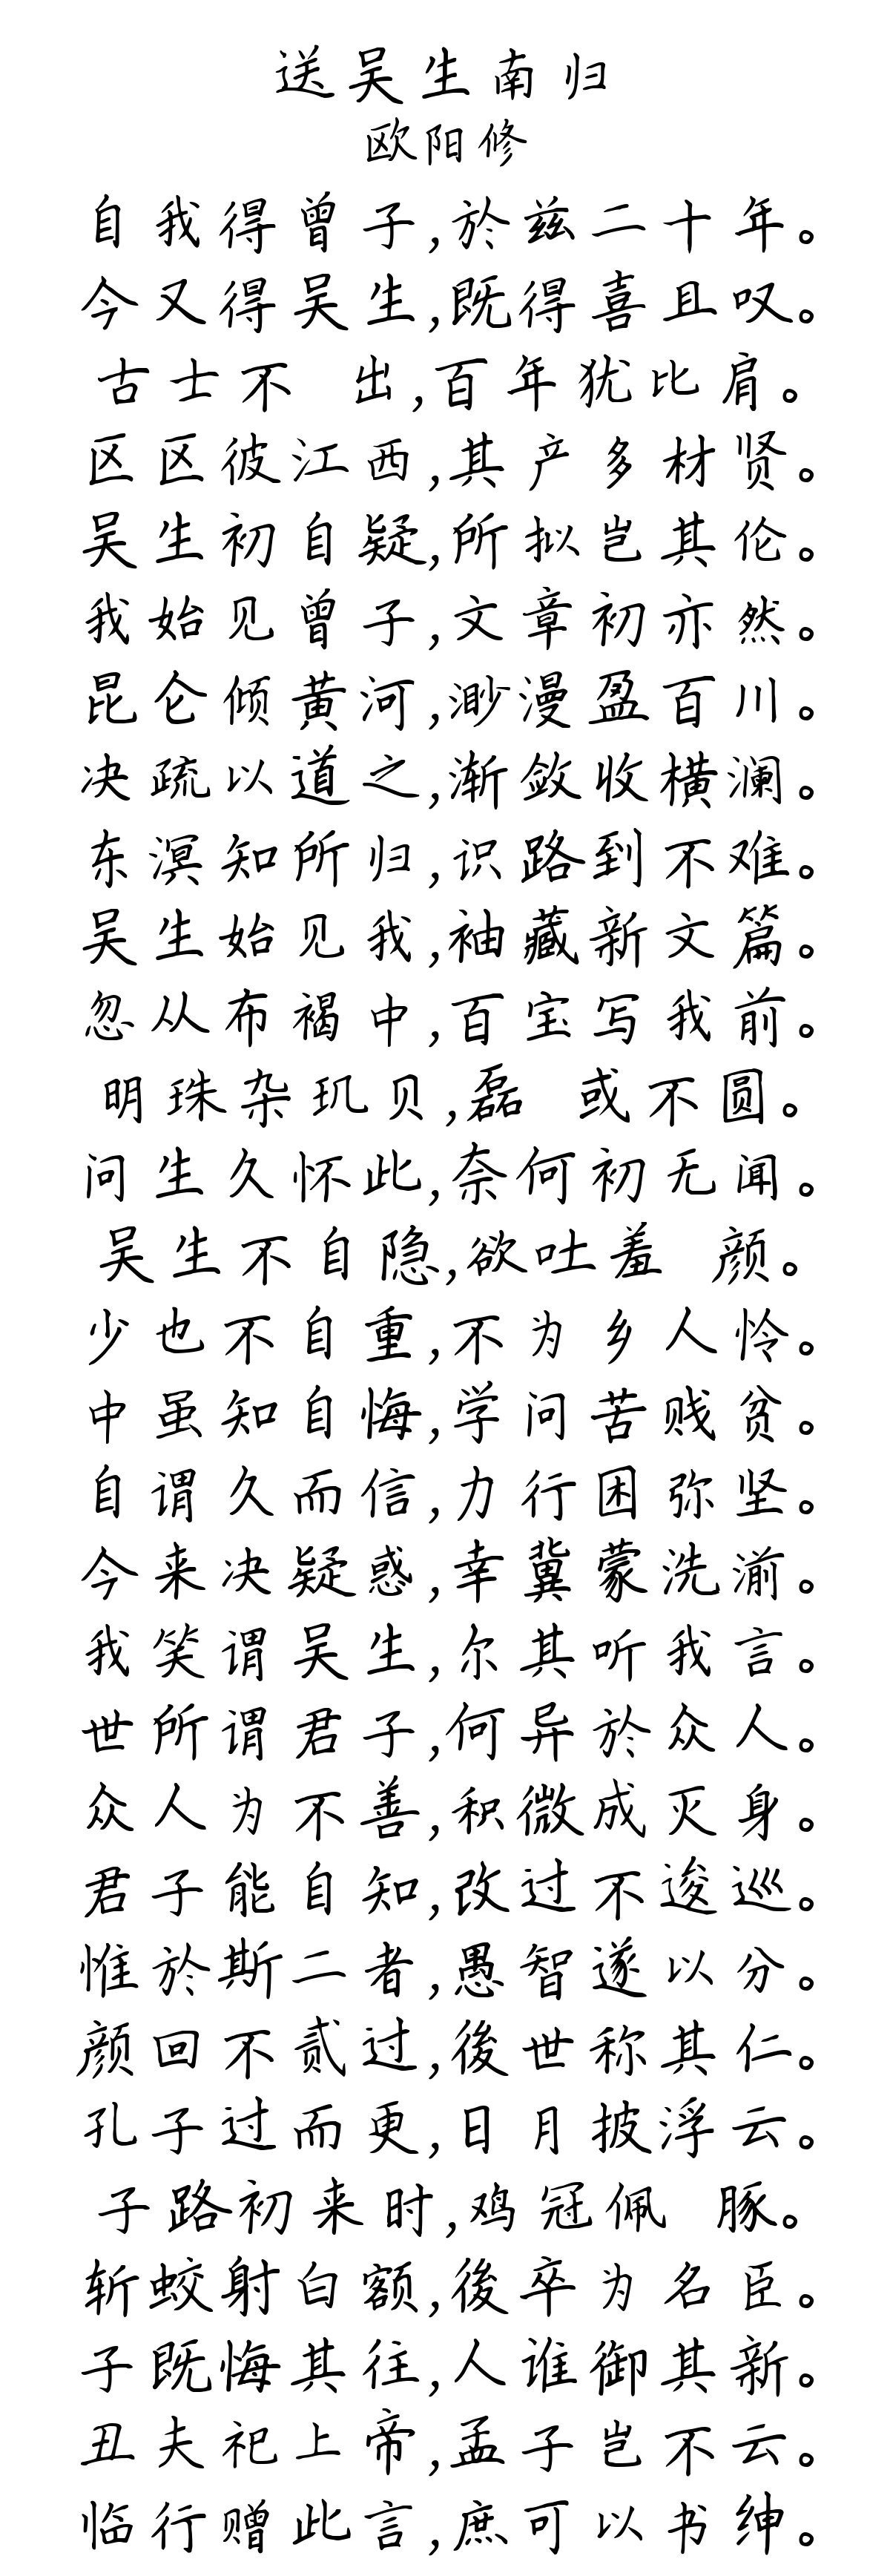 送吴生南归
欧阳修
自我得曾子,於兹二十年。
今又得吴生,既得喜且叹。
古士不 出,百年犹比肩。
区区彼江西,其产多材贤。
吴生初自疑,所拟岂其伦。
我始见曾子,文章初亦然。
昆仑倾黄河,渺漫盈百川。
决疏以道之,渐敛收横澜。
东溟知所归,识路到不难。
吴生始见我,袖藏新文篇。
忽从布褐中,百宝写我前。
明珠杂玑贝,磊 或不圆。
问生久怀此,奈何初无闻。
吴生不自隐,欲吐羞 颜。
少也不自重,不为乡人怜。
中虽知自悔,学问苦贱贫。
自谓久而信,力行困弥坚。
今来决疑惑,幸冀蒙洗湔。
我笑谓吴生,尔其听我言。
世所谓君子,何异於众人。
众人为不善,积微成灭身。
君子能自知,改过不逡巡。
惟於斯二者,愚智遂以分。
颜回不贰过,後世称其仁。
孔子过而更,日月披浮云。
子路初来时,鸡冠佩 豚。
斩蛟射白额,後卒为名臣。
子既悔其往,人谁御其新。
丑夫祀上帝,孟子岂不云。
临行赠此言,庶可以书绅。